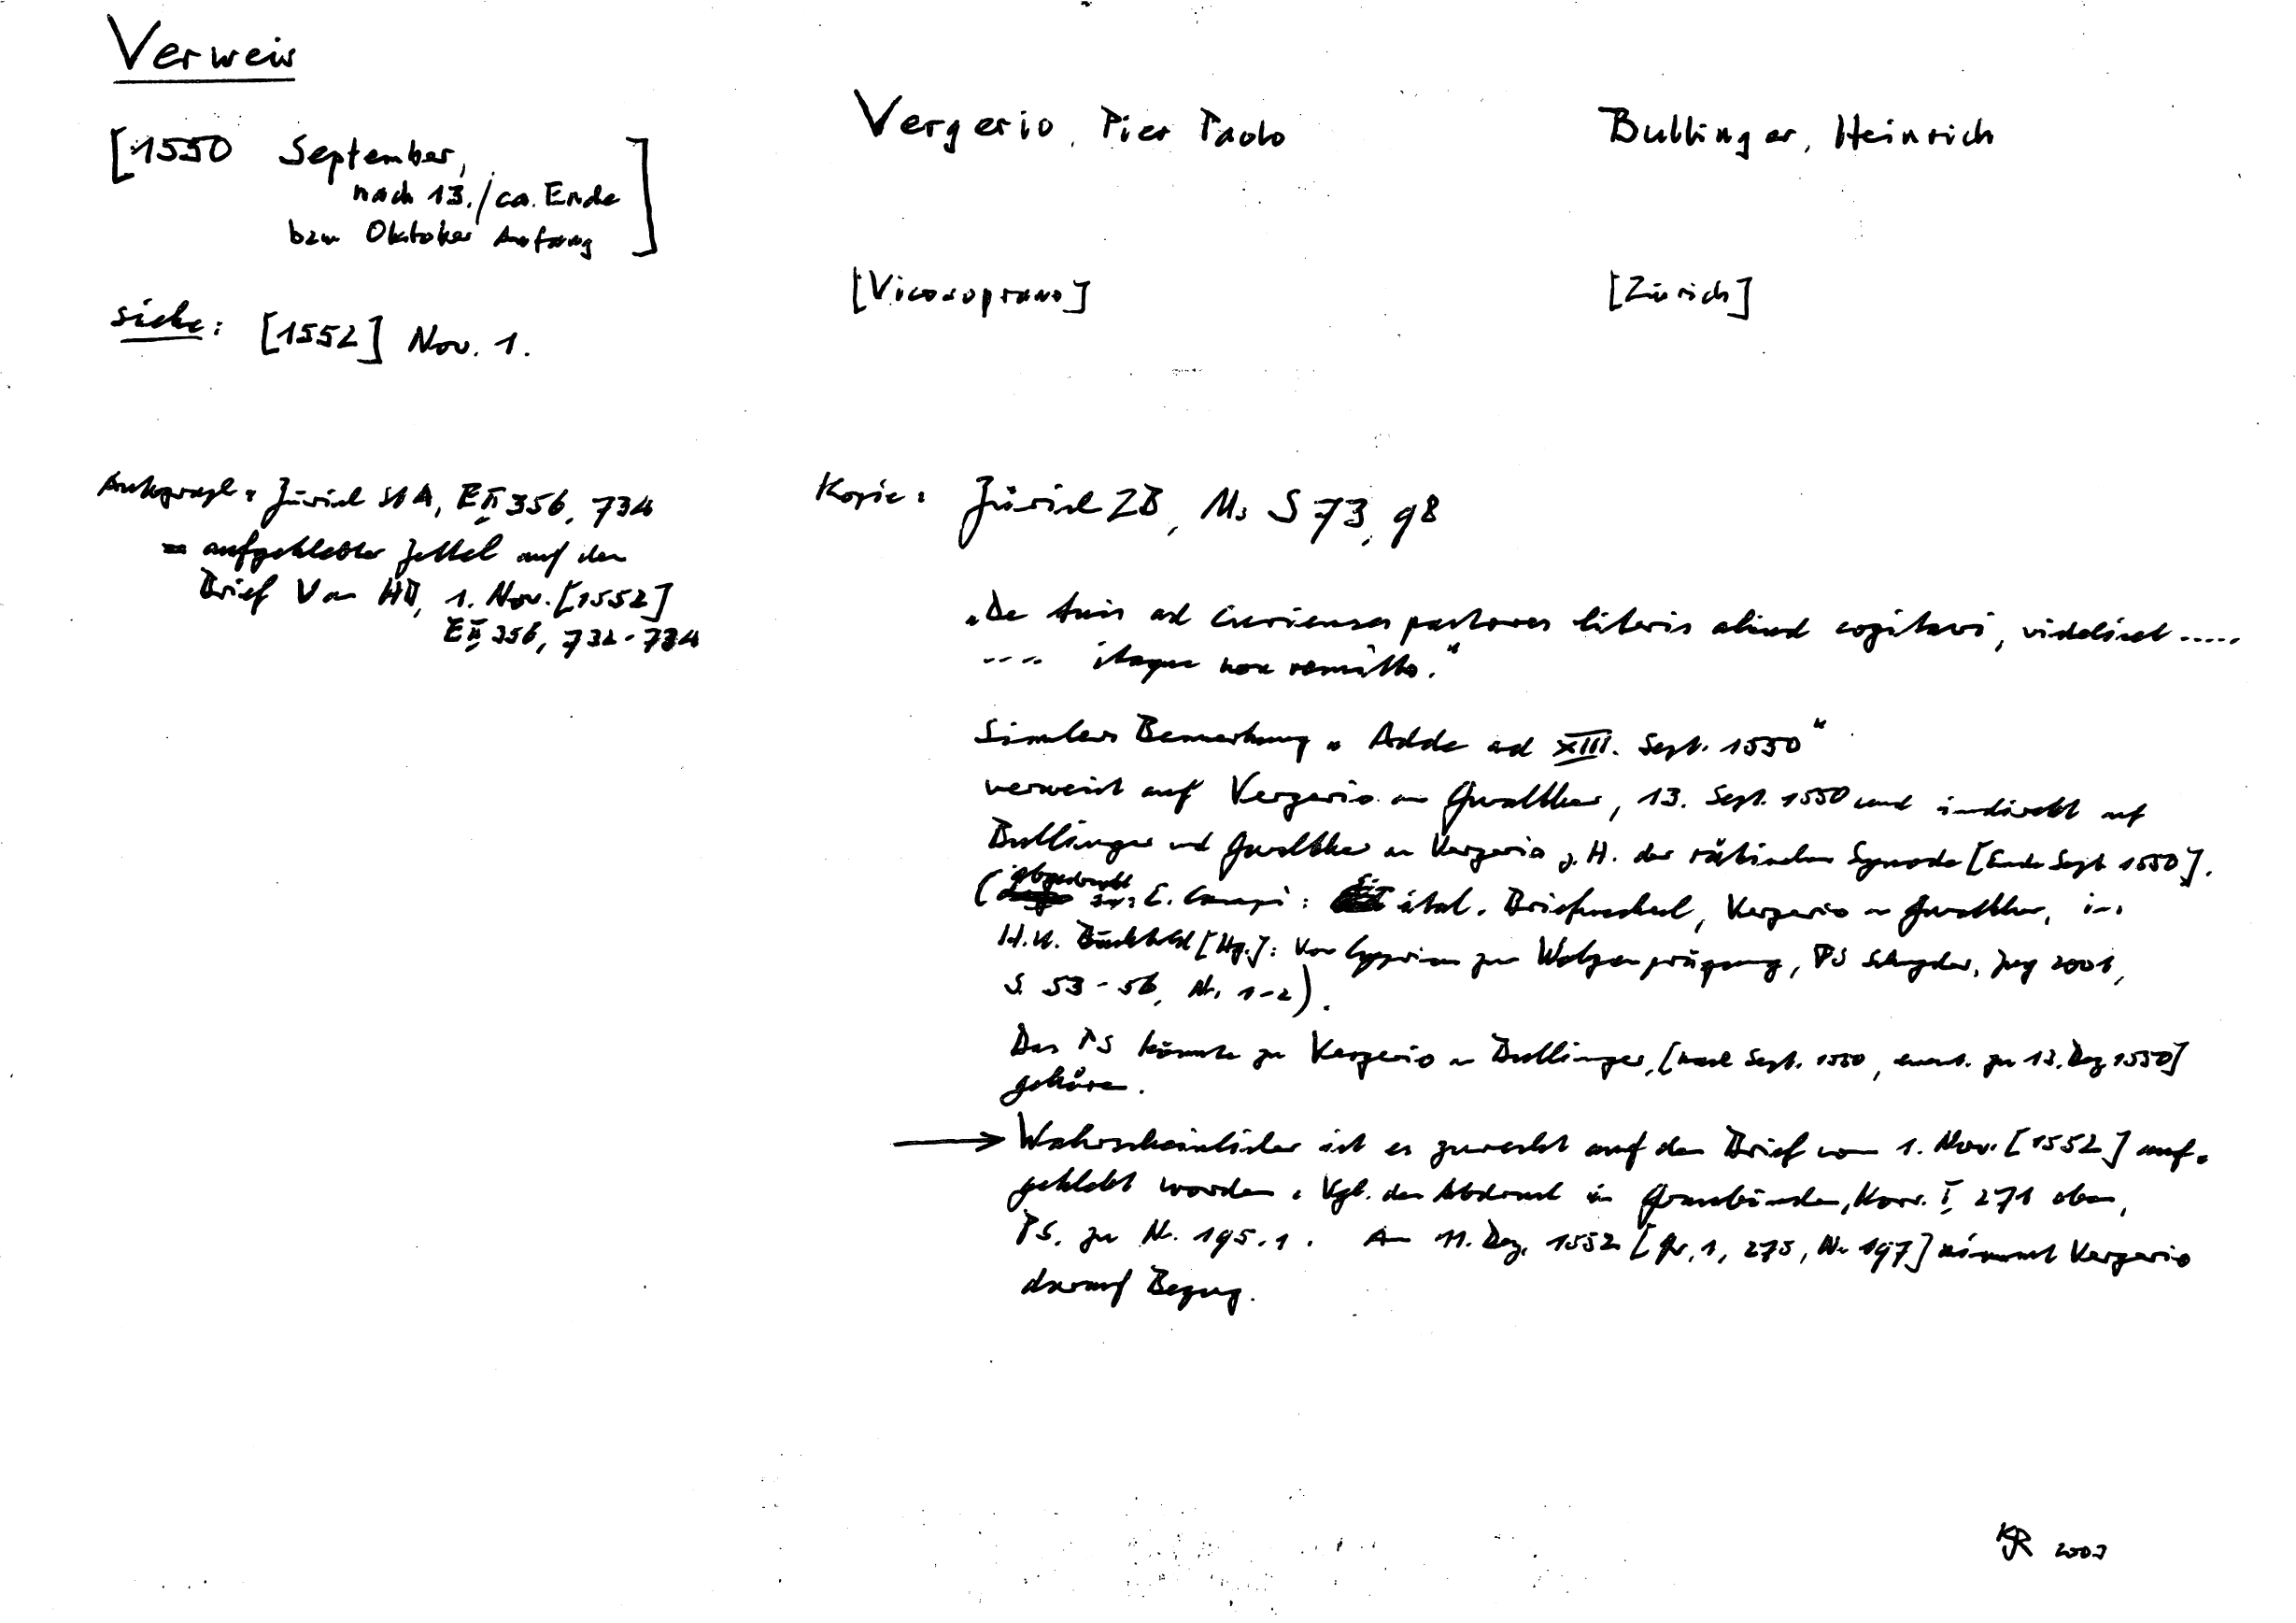 Verweis
[1550 September,
nach 13./ca. Ende
bzw Oktober Anfang]
Vergerio, Pier Paolo
Bullinger, Heinrich
[Vicosoprano]
[Zürich]
siehe: [1552] Nov. 1.
Autograph: Zürich StA, E II 356, 734
= aufgeklebter Zettel auf den
Brief V an HB, 1. Nov. [1552]
E II 356, 732-734
Kopie: Zürich ZB, Ms S 73, 98
"De tuis ad Curienses pastores literis aliud cogitavi, videlicet .....
.... itaque nox remitto."
Simlers Bemerkung "Adde ad XIII. Sept. 1550"
verweist auf Vergerio an Gwalther, 13. Sept. 1550 und indirekt auf
Bullinger und Gwalther an Vergerio z.H. der rätischen Synode [Ende Sept 1550].
(abgedruckt in: E. Campi: ital. Briefwechsel, Vergerio an Gwalther, in:
H.U. Bächtold [Hg.]: Von Cyprian zur Walzenprägung, FS Schnyder, Zug 2001,
S. 53-56, Nr. 1-2).
Das PS könnte zu Vergerio an Bullinger, [nach Sept. 1550, event. zu 13. Dez 1550]
gehören.
→ Wahrscheinlicher ist es zurecht auf den Brief vom 1. Nov. [1552] auf-
geklebt worden. Vgl. den Abdruck in Graubünden, Korr. I, 271 oben,
PS. zu Nr. 195.1. Am 11. Dez. 1552 [Gr, 1, 275, Nr 197] nimmt Vergerio
darauf Bezug.
KJR 2003